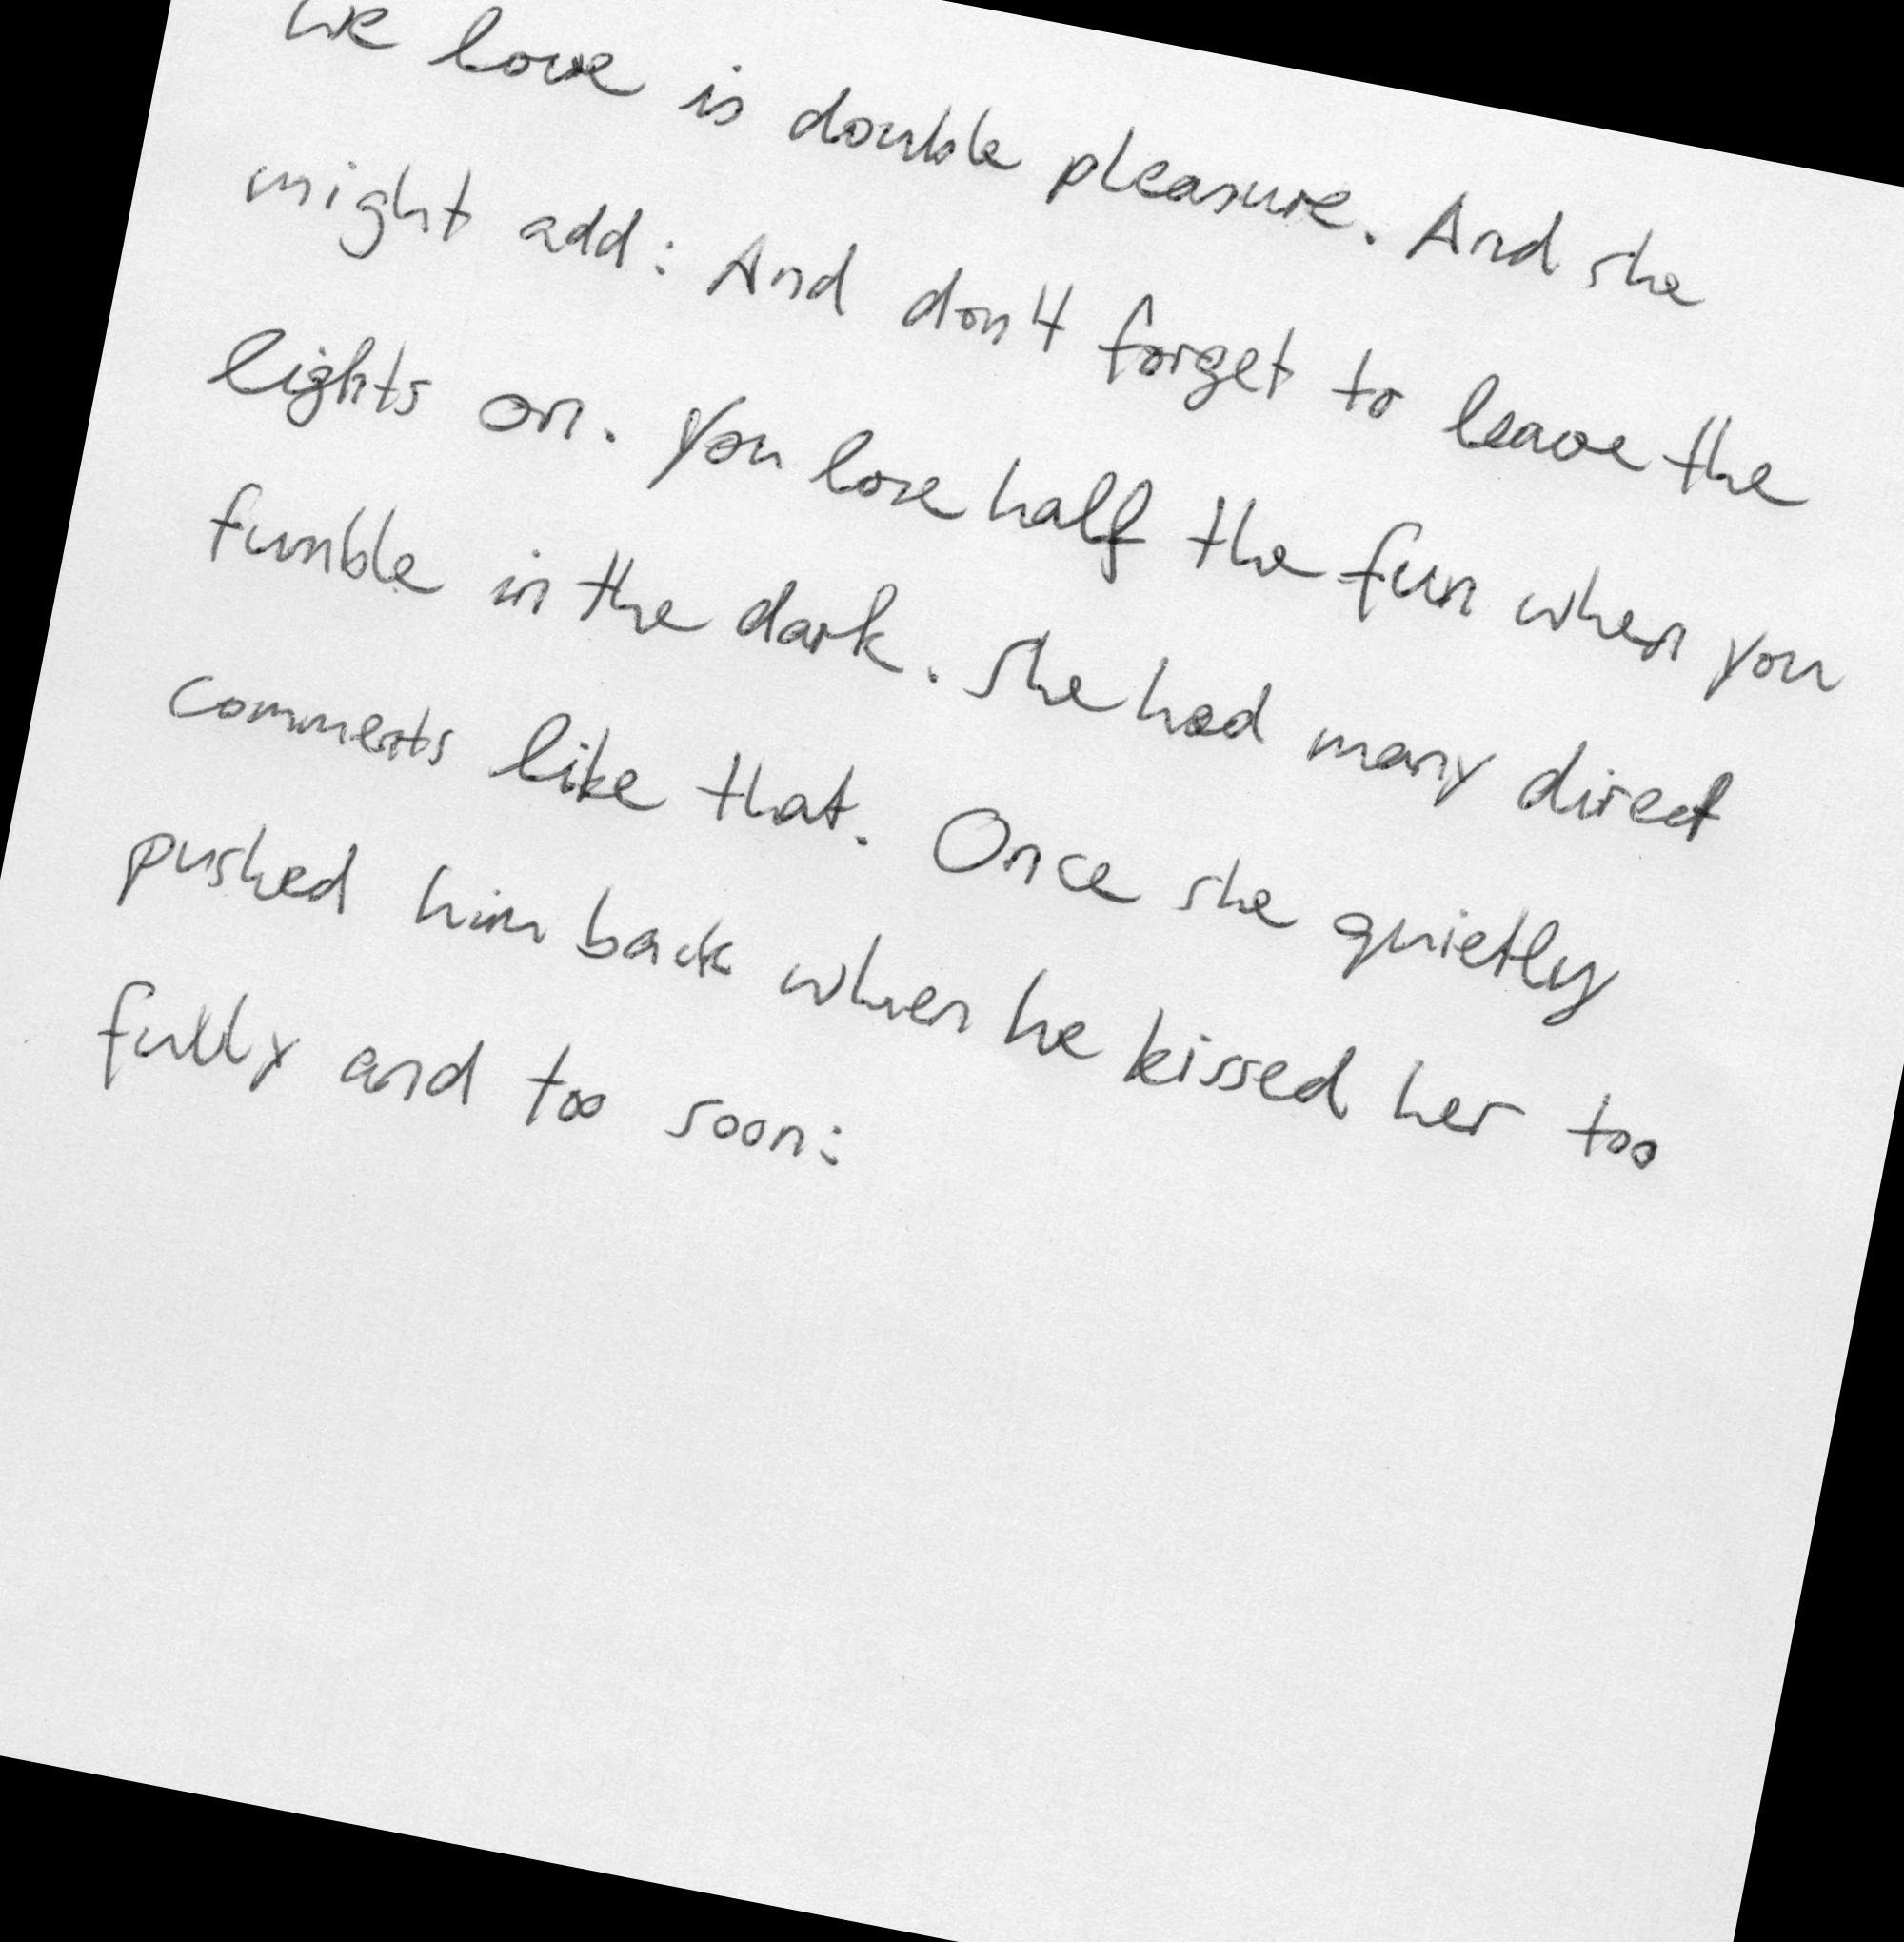 we love is double pleasure. And she
might add: And don't forget to leave the
lights on. You lose half the fun when you
fumble in the dark. She had many direct
comments like that. Once she quietly
pushed him back when he kissed her too
fully and too soon: